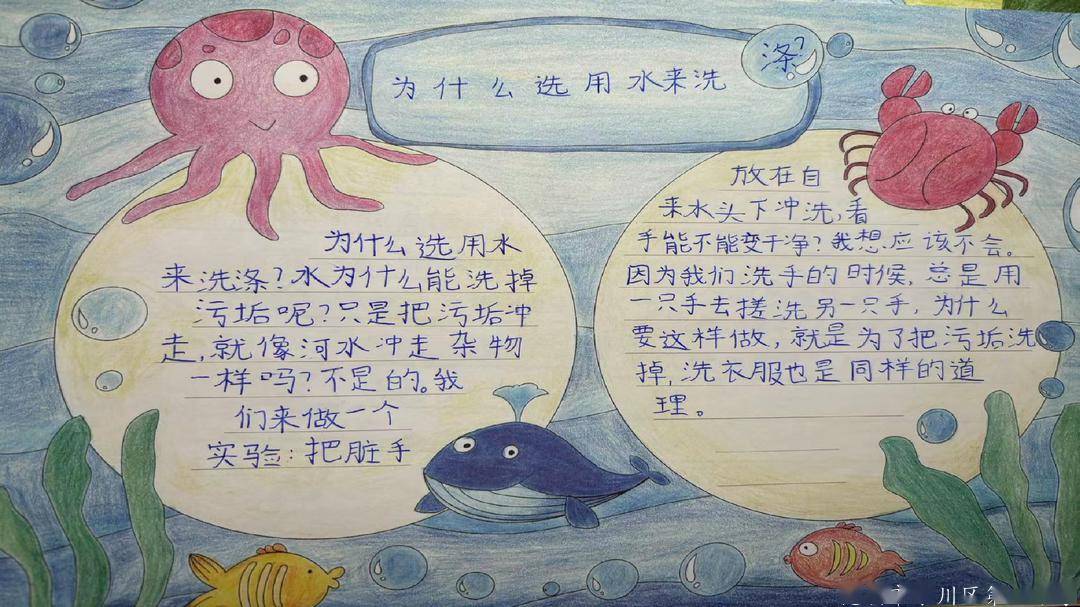 为什么选用水来洗涤?
为什么选用水
来洗涤?水为什么能洗掉
污垢呢?只是把污垢冲
走,就像河水冲走杂物
一样吗?不是的。我
们来做一个
实验:把脏手
放在自
来水头下冲洗,看
手能不能变干净?我想应该不会。
因为我们洗手的时候,总是用
一只手去搓洗另一只手,为什么
要这样做,就是为了把污垢洗
掉,洗衣服也是同样的道
理。
川区